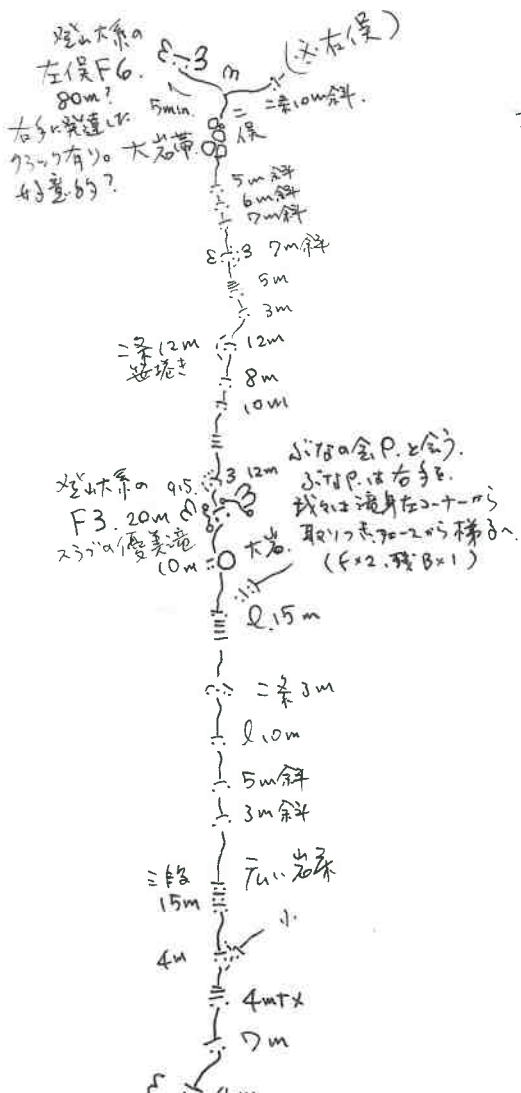 登山大系の
左俣F6.
80m?
右手に発達した
クラック有り。
好意的?
5min.
(※右俣)
二条10m斜.
二俣
大岩帯
5m斜
6m斜
7m斜
7m斜
5m
3m
二条12m
笹塔き
12m
8m
10m
登山大系の
F3. 20m
スラブの優美滝
9:15.
12m
ぶなの会P.と会う.
ぶなP.は右手を.
我々は滝身左コーナーから
取りつき
フェースから梯子へ.
(F×2. 残B×1)
10m
大岩.
l.15m
二条3m
l.10m
5m斜
3m斜
広い岩床
三段
15m
小.
4m
4m+x
7m